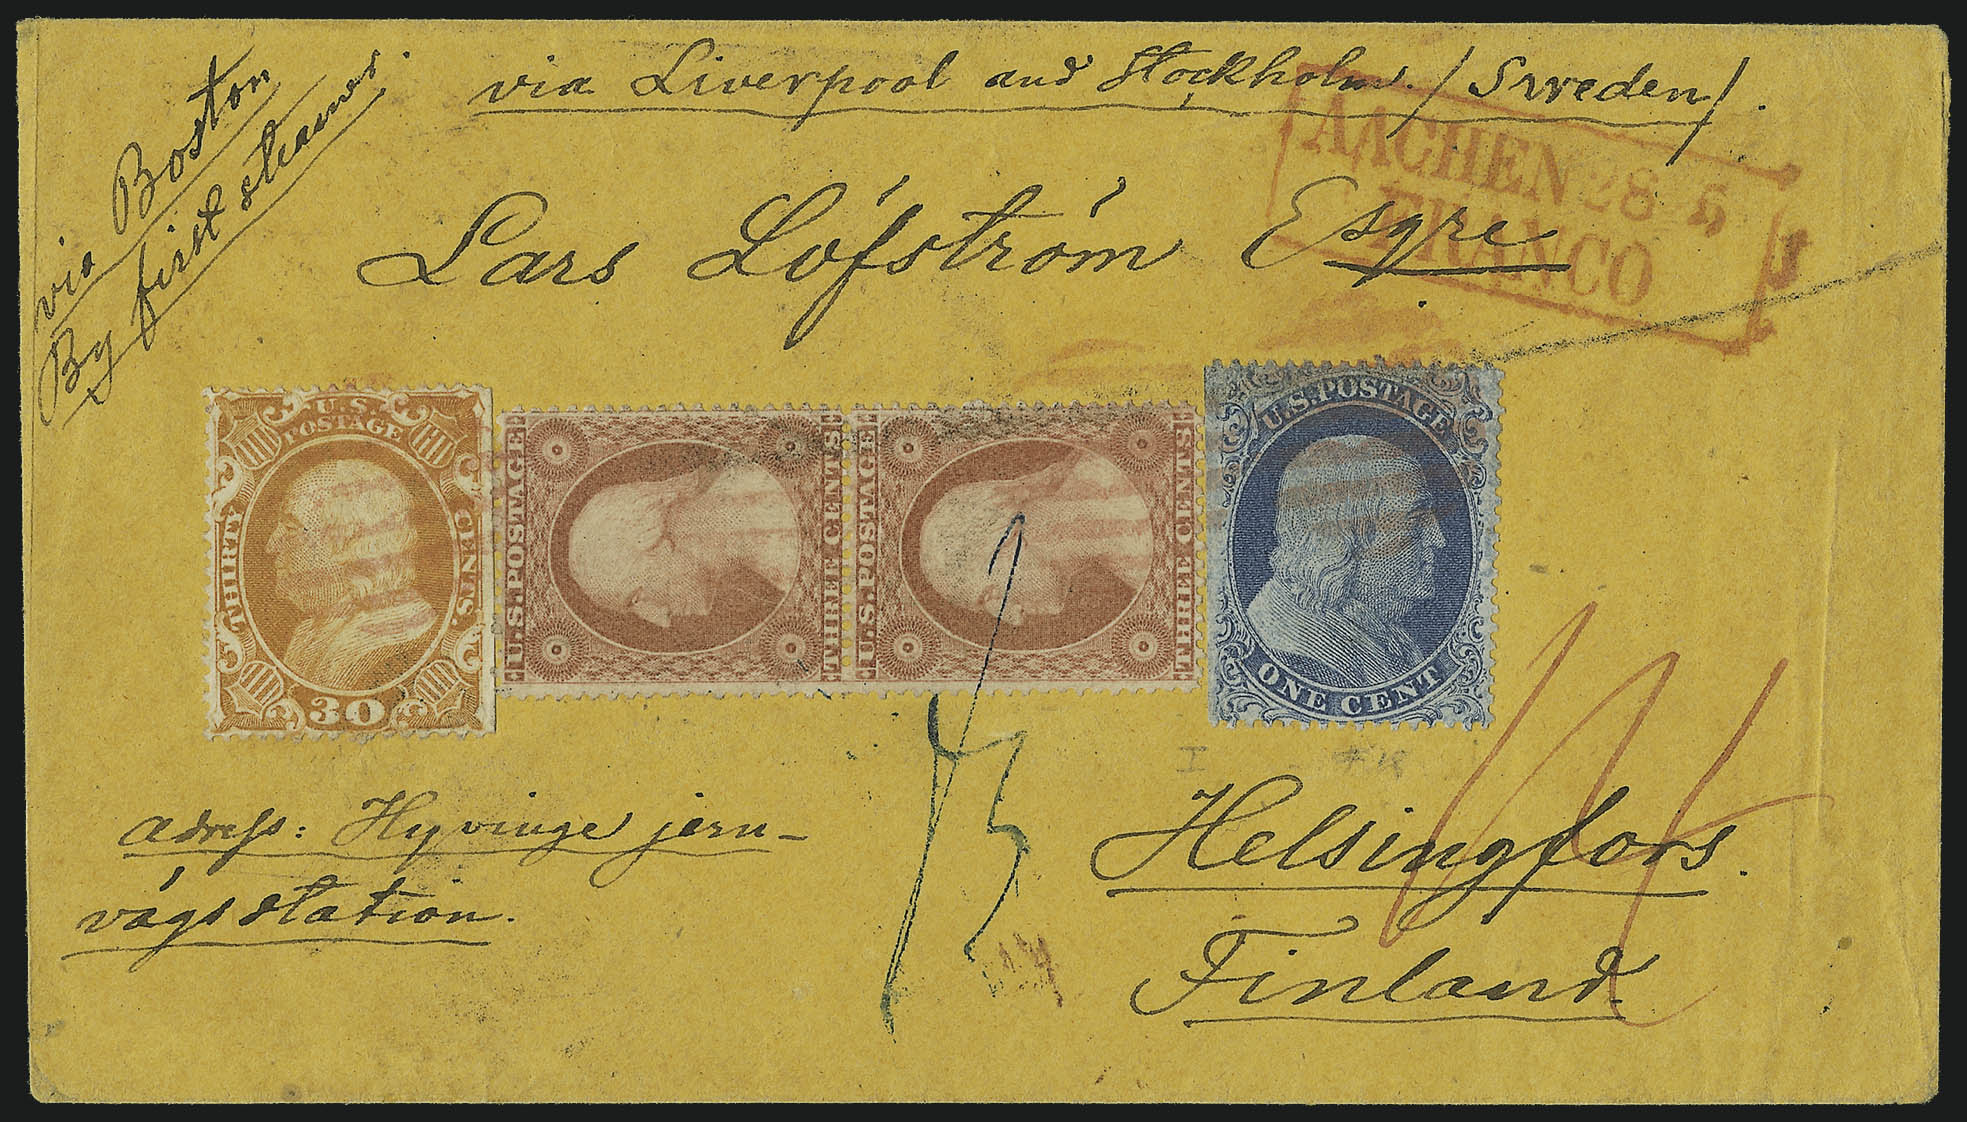 via Boston
By first steamer.
via Liverpool and Stockholm. / Sweden / .
AACHEN 28 5
FRANCO
Lars Löfström Esqre
U.S.
POSTAGE
THIRTY
CENTS.
30
U.S. POSTAGE
THREE CENTS
U.S. POSTAGE
THREE CENTS
U.S. POSTAGE
ONE CENT
I
adress: Hyvinge jern-
vägsstation.
Helsingfors.
Finland.